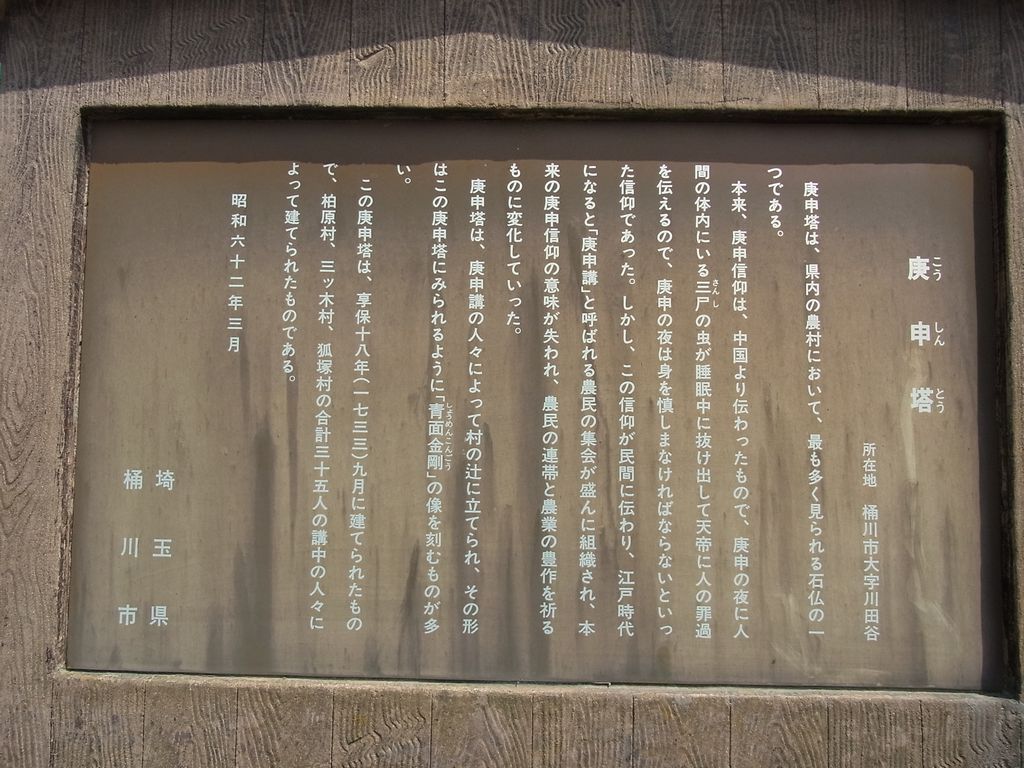 庚申塔
こうしんとう
所在地 桶川市大字川田谷
庚申塔は、県内の農村において、最も多く見られる石仏の一
つである。
本来、庚申信仰は、中国より伝わったもので、庚申の夜に人
間の体内にいる三尸の虫が睡眠中に抜け出して天帝に人の罪過
さんし
を伝えるので、庚申の夜は身を慎しまなければならないといっ
た信仰であった。しかし、この信仰が民間に伝わり、江戸時代
になると「庚申講」と呼ばれる農民の集会が盛んに組織され、本
来の庚申信仰の意味が失われ、農民の連帯と農業の豊作を祈る
ものに変化していった。
庚申塔は、庚申講の人々によって村の辻に立てられ、その形
はこの庚申塔にみられるように「青面金剛」の像を刻むものが多
しょうめんこんごう
い。
この庚申塔は、享保十八年(一七三三)九月に建てられたもの
で、柏原村、三ッ木村、狐塚村の合計三十五人の講中の人々に
よって建てられたものである。
昭和六十二年三月
埼玉県
桶川市